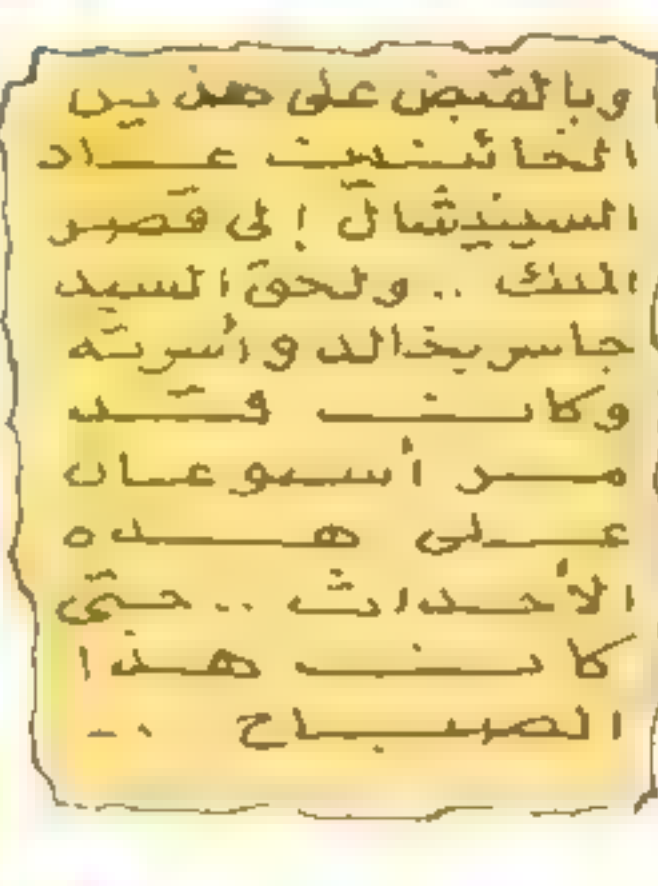 وبالقبض على هذين
الخائنين عاد
السينيشال إلى قصر
الملك .. ولحق السيد
جاسر بخالد وأسرته
وكان قد
مر أسبوعان
على هذه
الأحداث .. حتى
كان هذا
الصباح ..